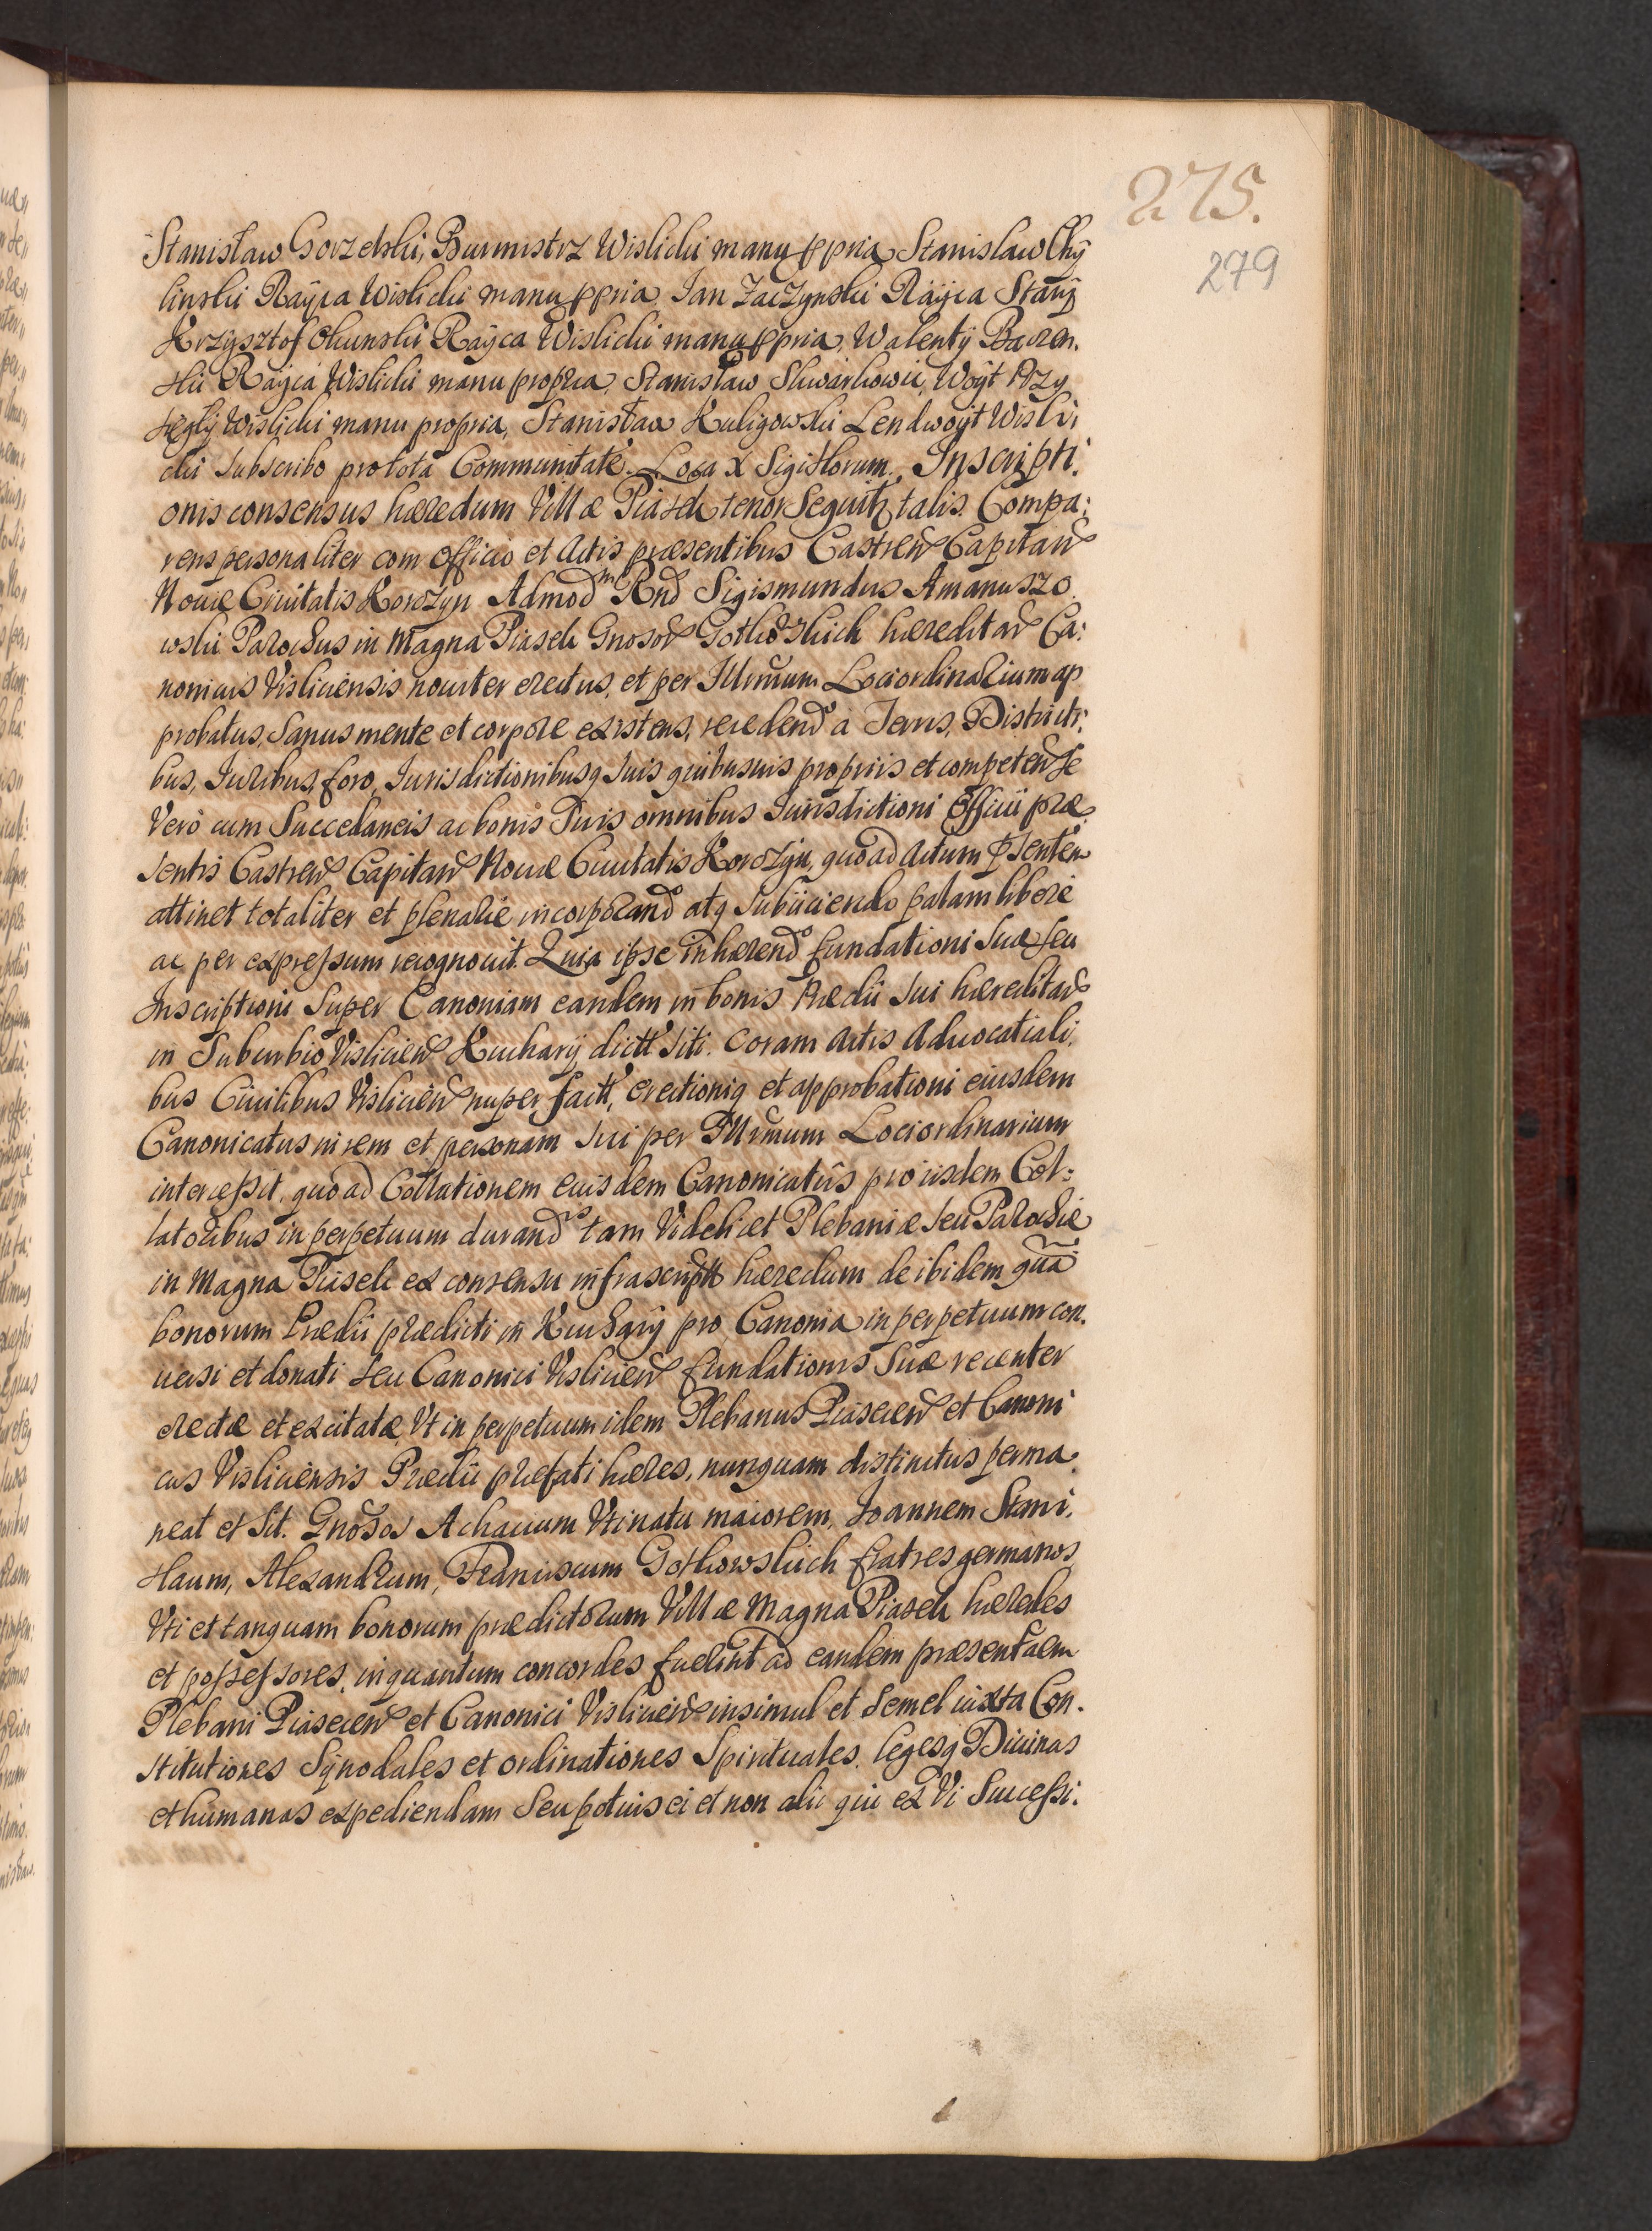 275.
279
Stanisław Gorzelski, Burmistrz Wislicki manu ppria Stanislaw Chÿ
linski Raÿca Wislicki manu ppria. Jan Zaczynski Raÿca Starÿ
Krzÿsztof Okunski Raÿca Wislicki manu ppria, Walentÿ Bacren.
ski Raÿca Wislicki manu propria, Stanisław Skwarkowic, Woÿt Przy
sięglÿ Wislicki manu propria, Stanisław Kuligowski Lendwoÿt Wisli
cki subscribo pro tota Communitate. Loca X Sigillorum. Inscripti:
onis consensus hæredum Villæ Piasek tenor Sequitz talis. Compa:
rens personaliter com Officio et Actis præsentibus Castren Capitan
Nouæ Ciuitatis Korczyn Admod Rnd Sigismundus Amanuszo
wski Parochus in Magna Piasek Gnosor Gotkowskich hæreditar Ca:
nonicus Visliciensis nouiter erectus, et per Illrmum Lociordinarium ap
probatus, Sanus mente et corpore existens, recedend à Terris, Districti:
bus, Juribus, foro, Jurisdictionibusq suis quibusuis propriis et competen se
Verò cum Succedaneis ac bonis Suis omnibus Jurisdictioni Officii præ
sentis Castren Capitan Nouæ Ciuitatis Korczÿn, quoad Actum psentem
attinet totaliter et plenariè incorporand atq subiiciendo palam libere
ac per expressum recognouit. Quia ipse inhærend fundationi suæ seu
Inscriptioni Super Canoniam eandem in bonis Prædii sui hæreditar
in Suburbio Vislicien Kucharÿ dictt siti. Coram Actis Aduocatiali,
bus Ciuilibus Vislicien nuper factt, erectioniq et approbationi eiusdem
Canonicatus in rem et personam sui per Illrmum Lociordinarium
intercessit, quoad Collationem eiusdem Canonicatûs pro iisdem Col:
latoribus in perpetuum durand tam Videlicet Plebaniæ seu Parochiæ
in Magna Piasek ex consensu infrascriptt hæredum de ibidem quā
bonorum Prædii prædicti in Kucharÿ pro Canonia in perpetuum con.
uersi et donati seu Canonici Vislicien fundationis Suæ recenter
erectæ et excitatæ, Vt in perpetuum idem Plebanus Piasecen et Canoni
cus Visliciensis Prædii præfati hæres, nunquam distinctus perma
neat et sit. Gnosos Achacium Vti natu maiorem, Joannem Stani.
slaum, Alexandrum, Franciscum Gotkowskich fratres germanos
Vti et tanquam bonorum prædictorum Villæ Magna Piasek hæredes
et possessores, inquantum concordes fuerint ad eandem præsentaem
Plebani Piasecen et Canonici Vislicien insimul et semel iuxta Con.
stitutiones Sÿnodales et ordinationes Spirituales, legesq Diuinas
et humanas expediendam Seu potius ei et non alii qui ex Vi Successi.